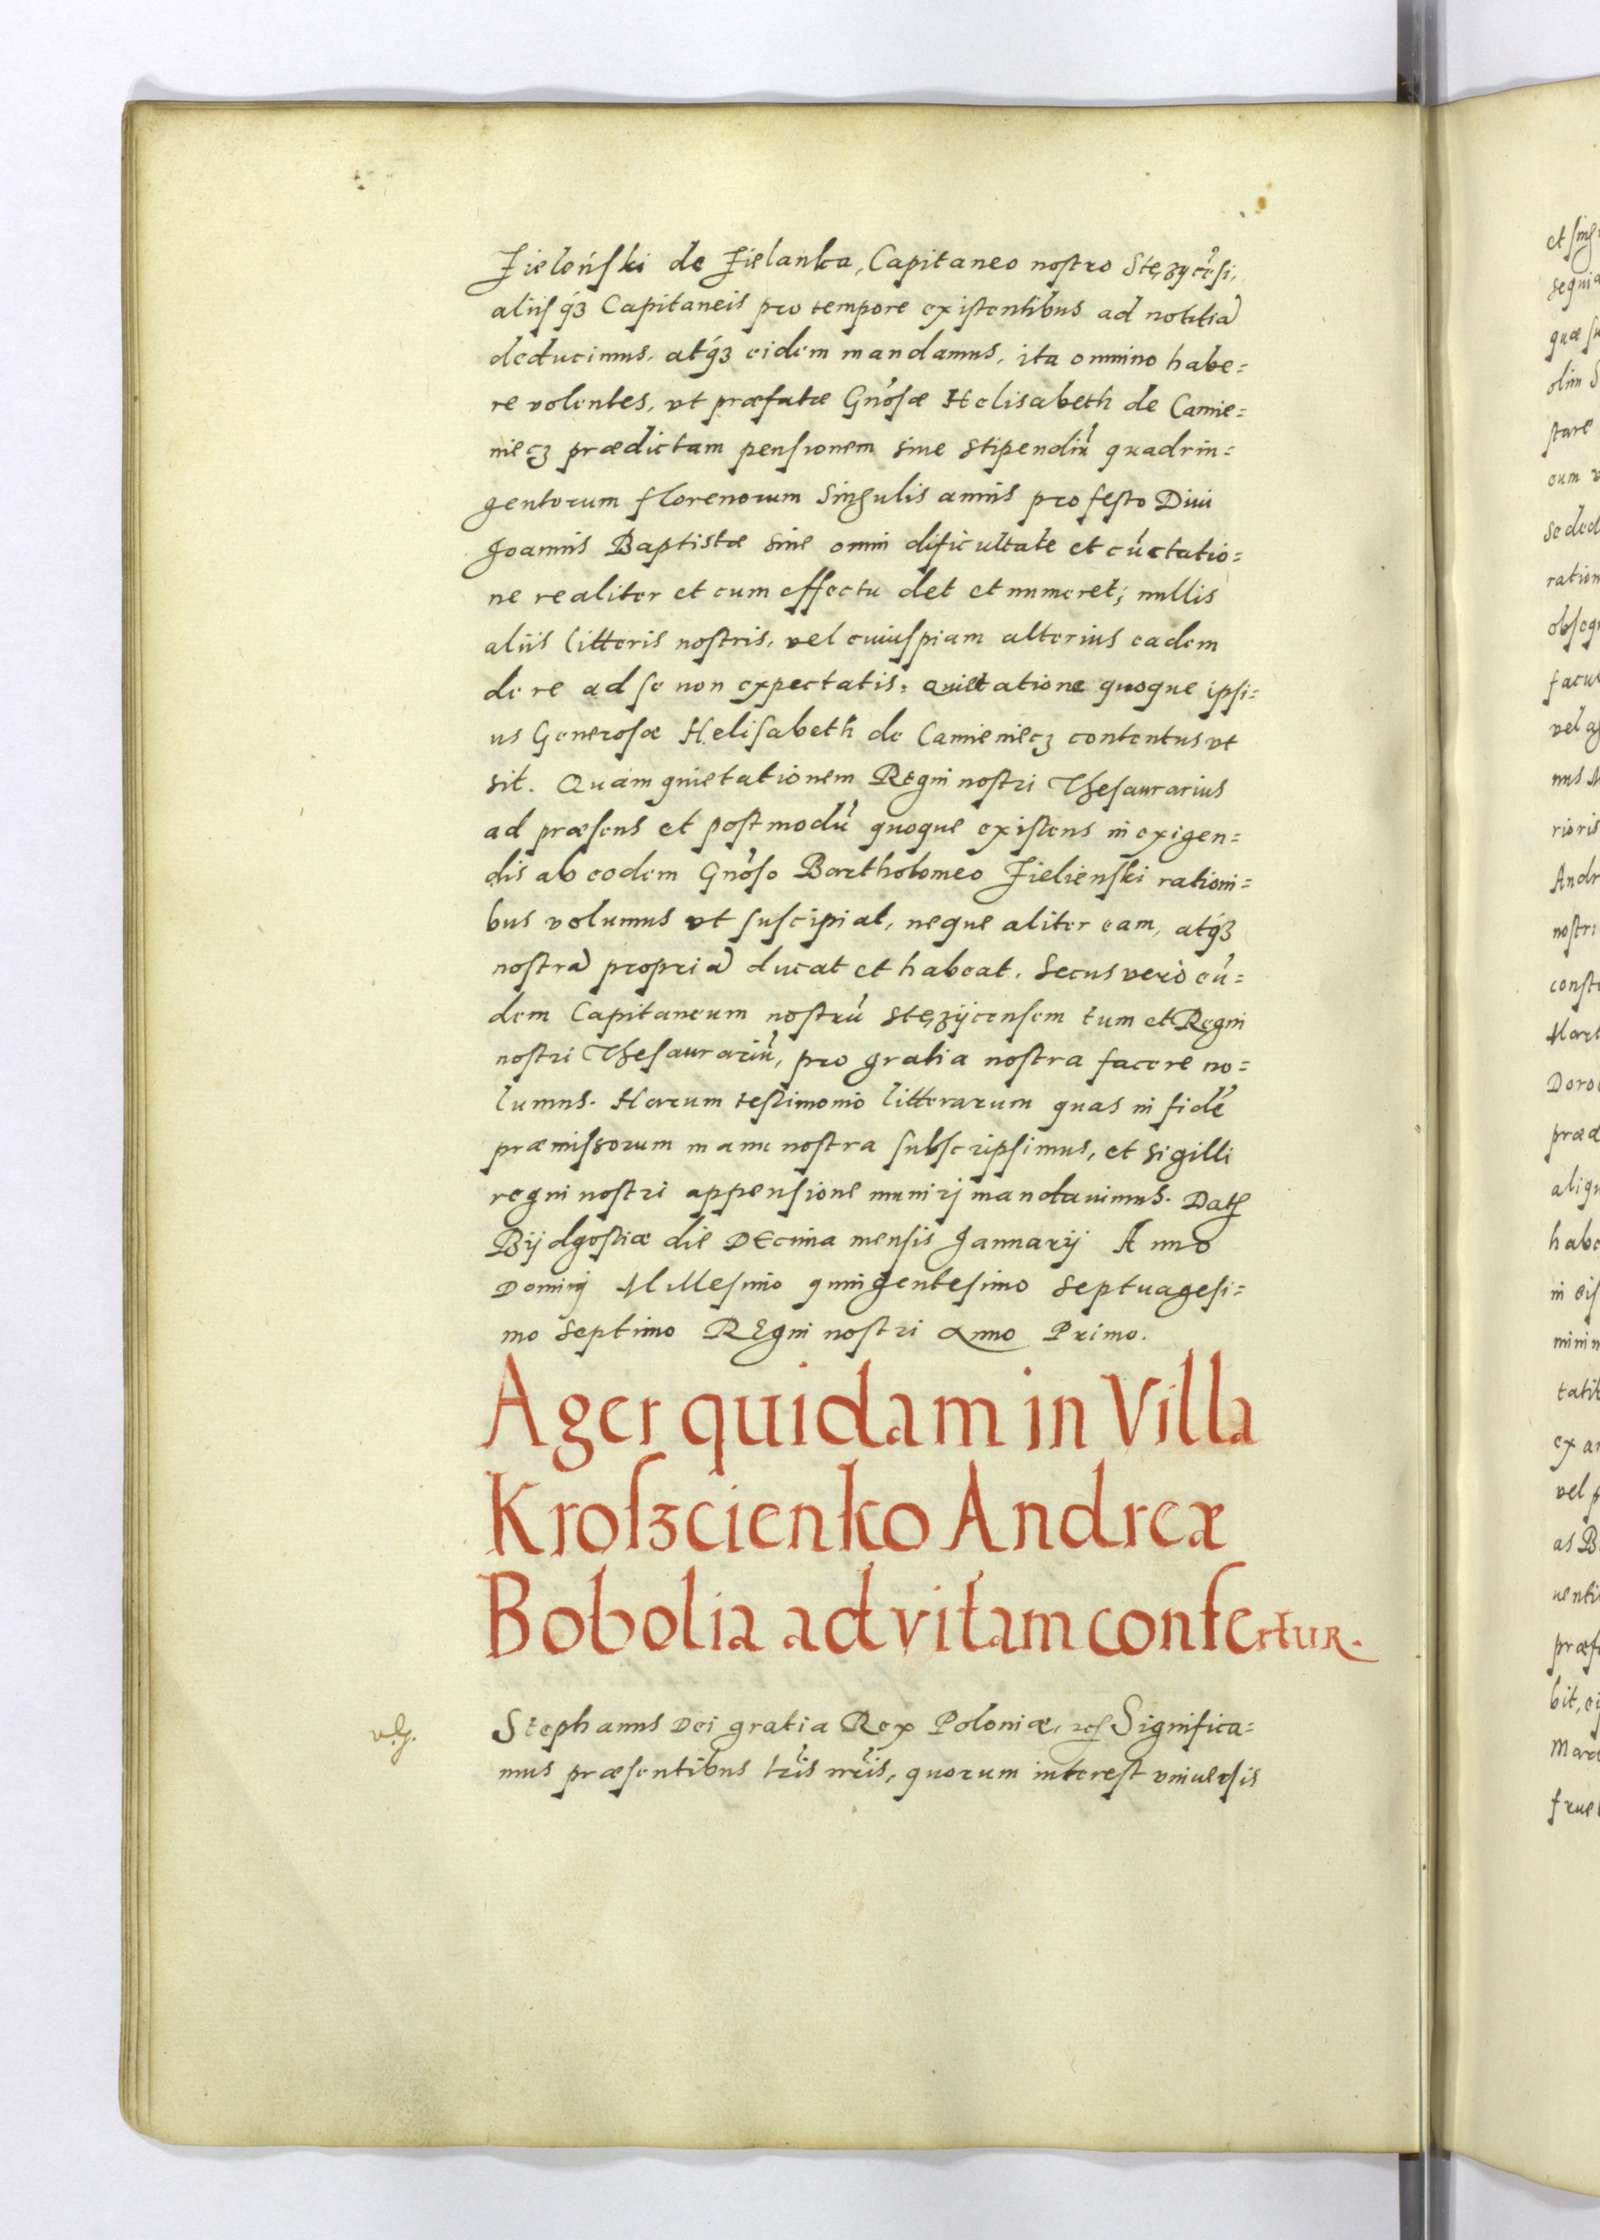 Zieleński de Zielanka, Capitaneo nostro Stęzyceñsi,
aliisq́ȝ Capitaneis pro tempore existentibus ad notitiã
deducimus, atq́ȝ eidem mandamus, ita omnino habe=
re volentes, vt præfatæ Gñosæ Helisabeth de Camie=
niecz prædictam pensionem siue stipendiũ quadrin=
gentorum florenorum singulis annis pro festo Diui
Joannis Baptistæ sine omni dificultate et cũctatio=
ne realiter et cum effectu det et numeret; nullis
aliis litteris nostris, vel cuiuspiam alterius eadem
de re ad se non expectatis, quietatione quoque ipsi=
us Generosæ Helisabeth de Camieniecz contentus vt
sit. Quam quietationem Regni nostri Thesaurarius
ad præsens et postmodũ quoque existens in exigen=
dis ab eodem Gñoso Bartholomeo Zielienski rationi=
bus volumus vt suscipiat, neque aliter eam, atq́ȝ
nostrã propriã ducat et habeat. Secus verò eũ=
dem Capitaneum nostrũ stęzÿcensem tum et Regni
nostri Thesaurariũ, pro gratia nostra facere no=
lumus. Harum testimonio litterarum quas in fidẽ
præmissorum manu nostra subscripsimus, et sigilli
regni nostri appensione munirj mandauimus. Datȝ
Bÿdgostiæ die Decima mensis Januarij Anno
Dominj Millesimo quingentesimo septuagesi=
mo septimo Regni nostri anno Primo.
Ager quidam in Villa
Krosȝcienko Andreæ
Bobolia ad vitam confertur.
Stephanus Dei gratia Rex Poloniæ, etc Significa=
mus præsentibus lr̃is nr̃is, quorum interest vniuersis